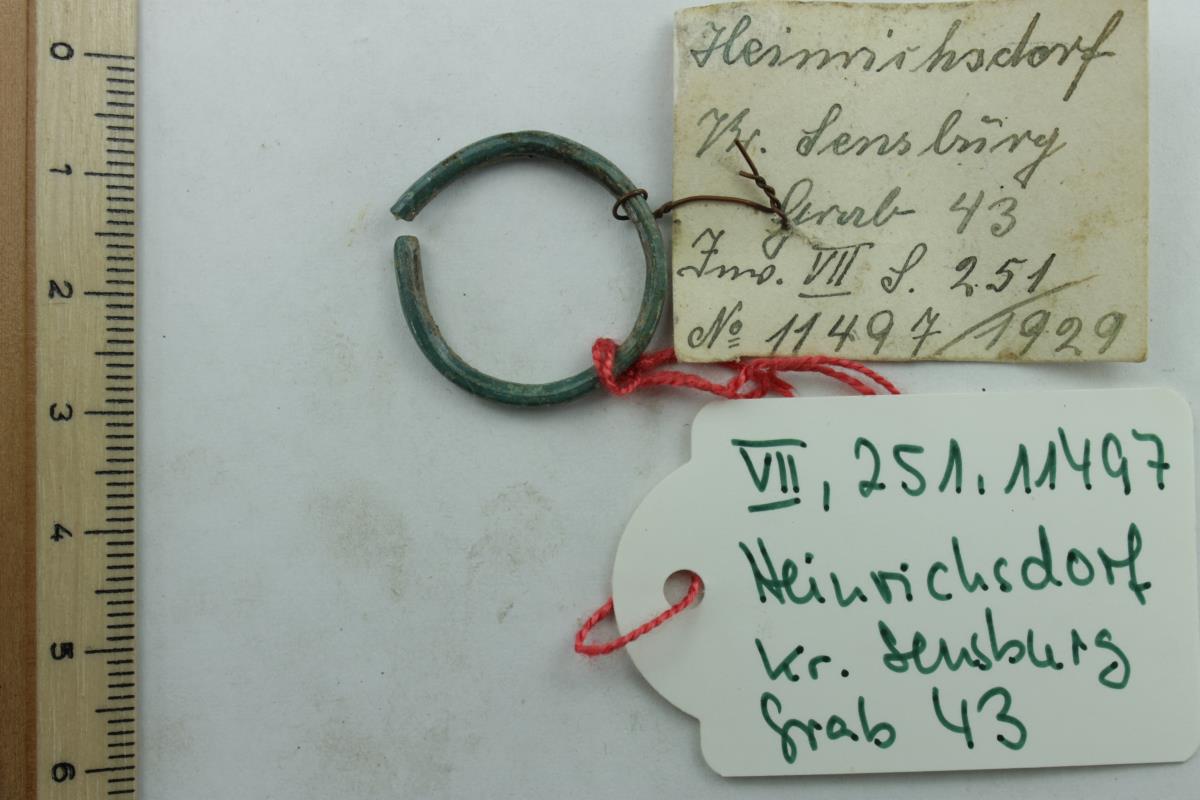 0
1
2
3
4
5
6
Heinrichsdorf
Kr. Sensbürg
Grab 43
Inv. VII S. 251
No 11497/1929
VII, 251.11497
Heinrichsdorf
Kr. Sensburg
Grab 43